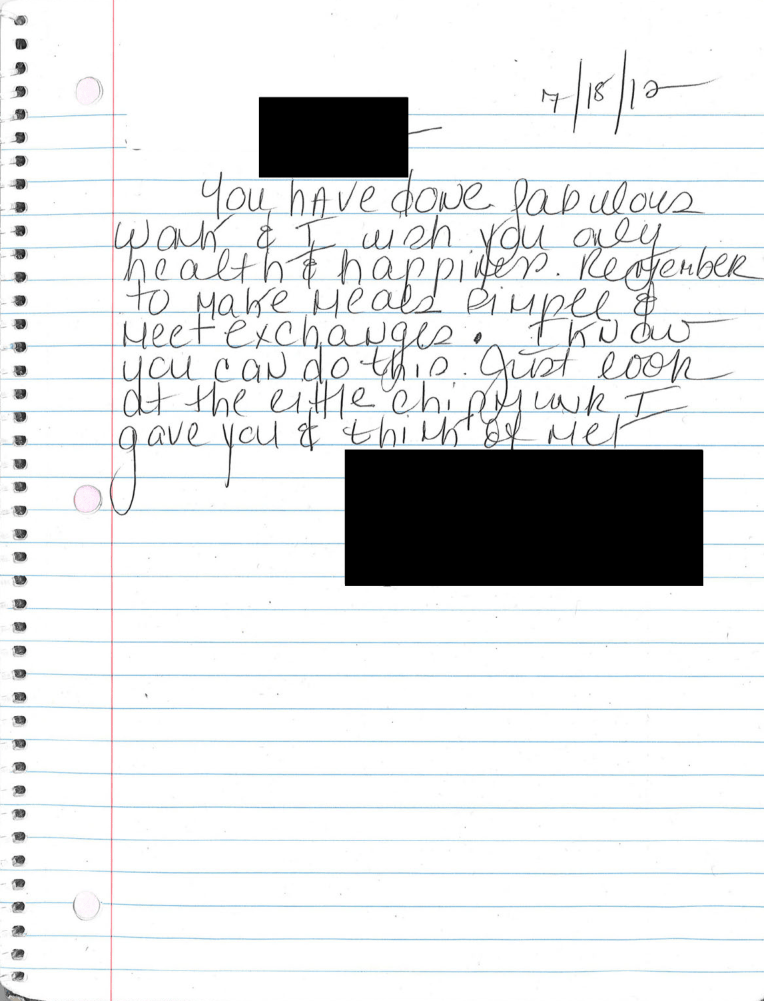 7/18/12
You have done fabulous
work & I wish you only
health & happiness. Remember
to make meals simple &
meet exchanges. I know
you can do this. Just look
at the little chipmunk I
gave you & think of me!